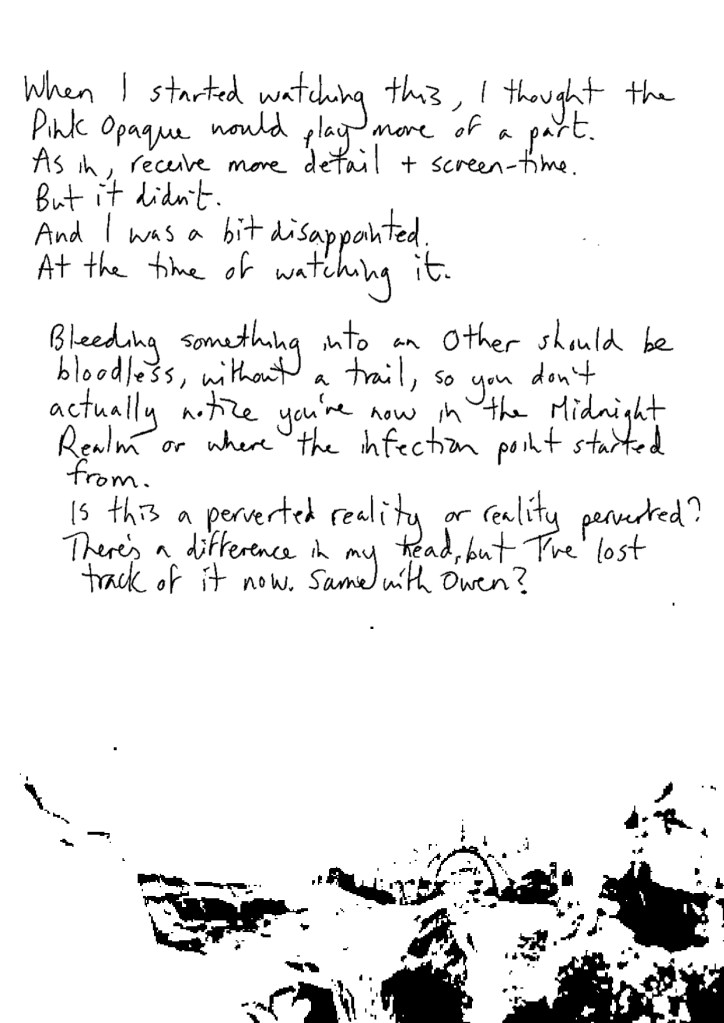 When I started watching this, I thought the
Pink Opaque would play more of a part.
As in, receive more detail + screen-time.
But it didn't.
And I was a bit disappointed.
At the time of watching it.
Bleeding something into an Other should be
bloodless, without a trail, so you don't
actually notice you're now in the Midnight
Realm or where the infection point started
from.
Is this a perverted reality or reality perverted?
There's a difference in my head, but I've lost
track of it now. Same with Owen?